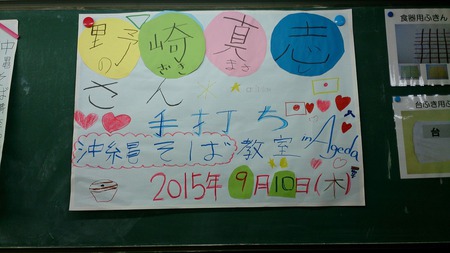 野崎真志
の ざき まさ し
さん
手打ち
沖縄そば教室 in Ageda
2015年9月10日(木)
食器用ふきん
台ふき用ふ
台